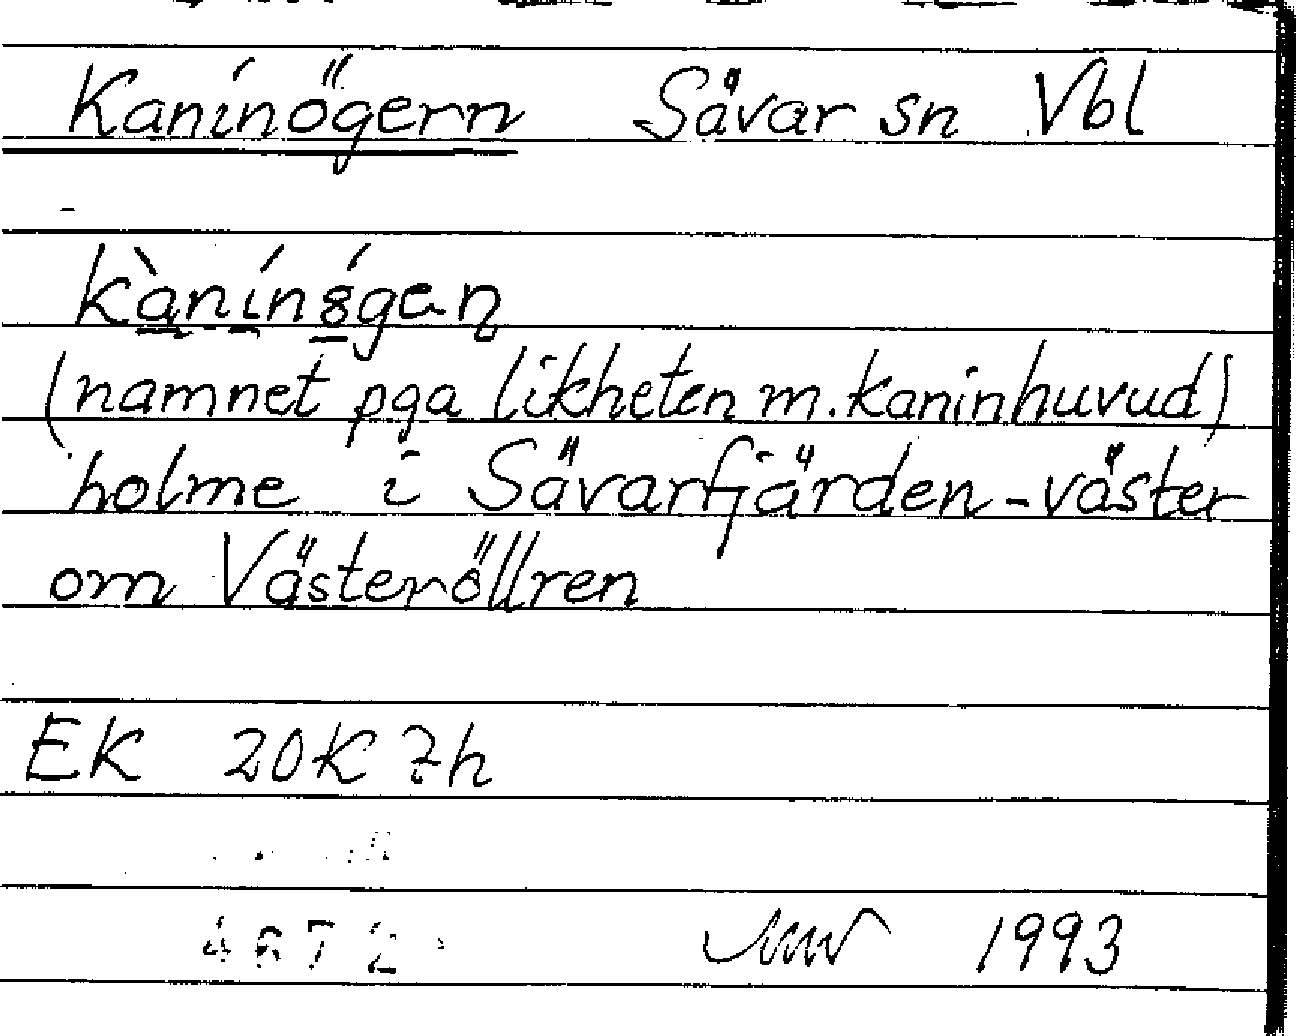 Kaninögern Sävar sn Vbl
(namnet pga likheten m. kaninhuvud)
holme i Sävarfjärden - väster
om Västeröllren
EK 20K 7h
4672
1993